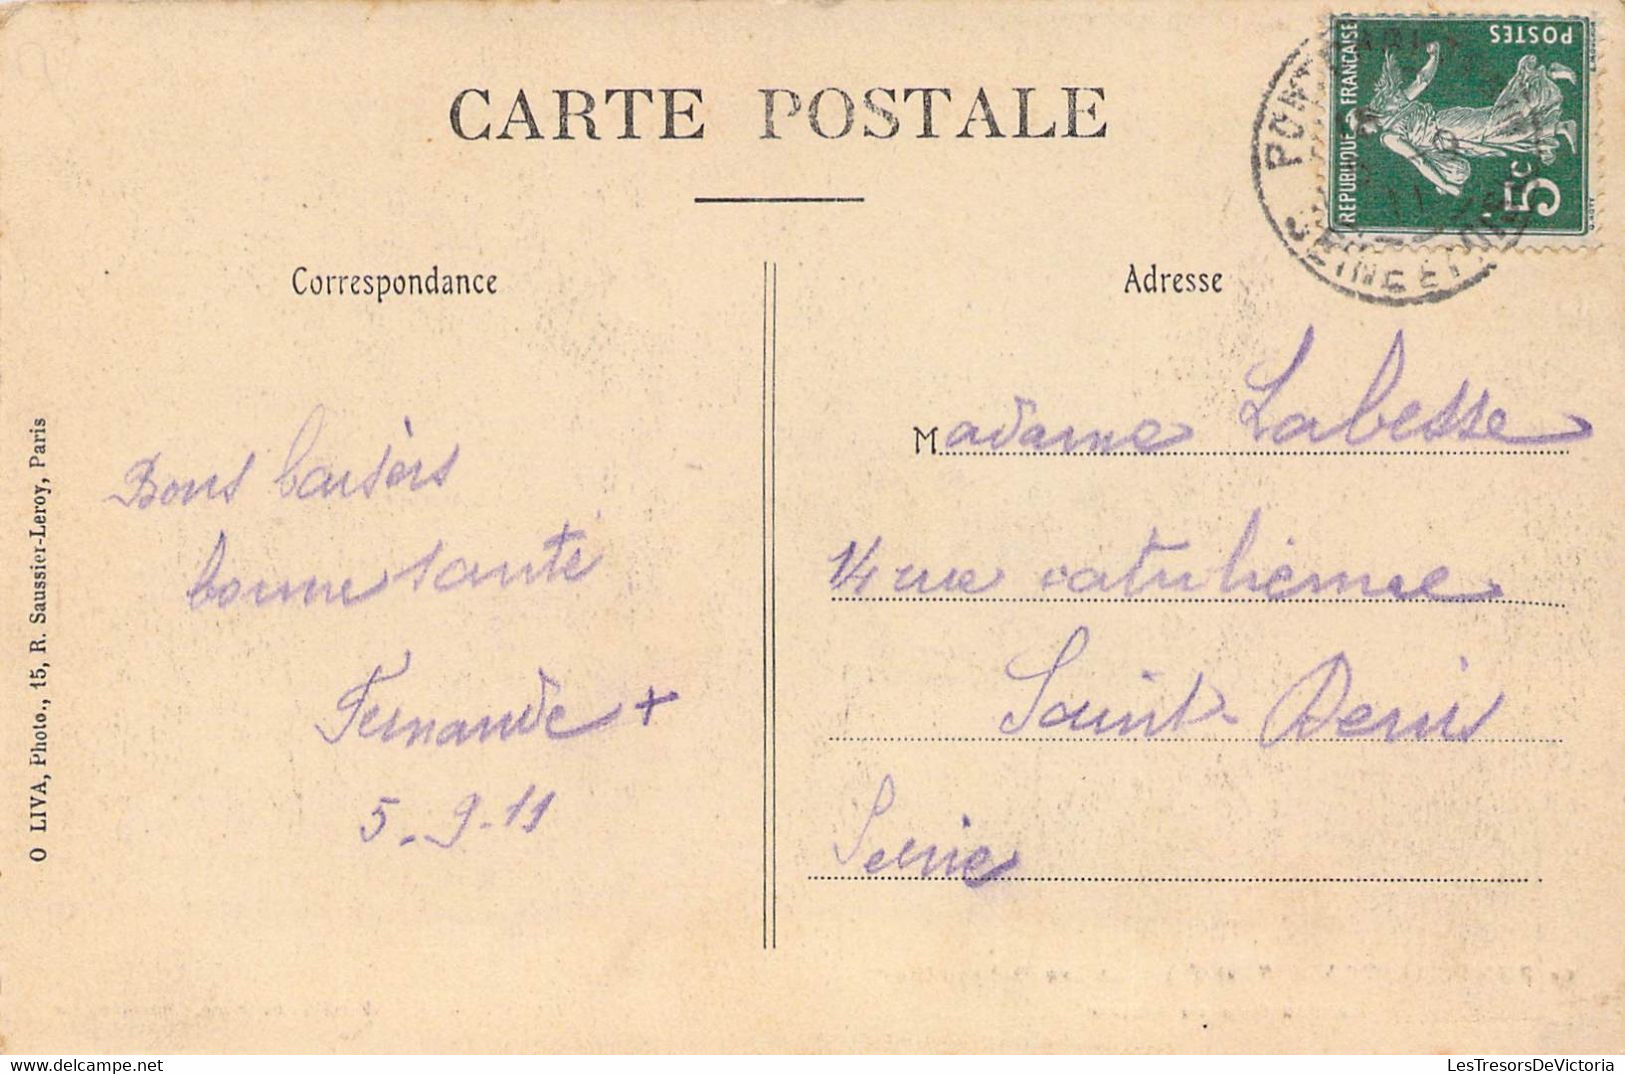 CARTE POSTALE
POSTES
REPUBLIQUE FRANÇAISE
5c
PONT
SEINE ET
Correspondance
Adresse
Bons baisers
bonne santé
Fernande +
5-9-11
Madame Labesse
14 rue catulienne
Saint-Denis
Seine
O LIVA, Photo., 15, R. Saussier-Leroy, Paris
LesTresorsDeVictoria.com